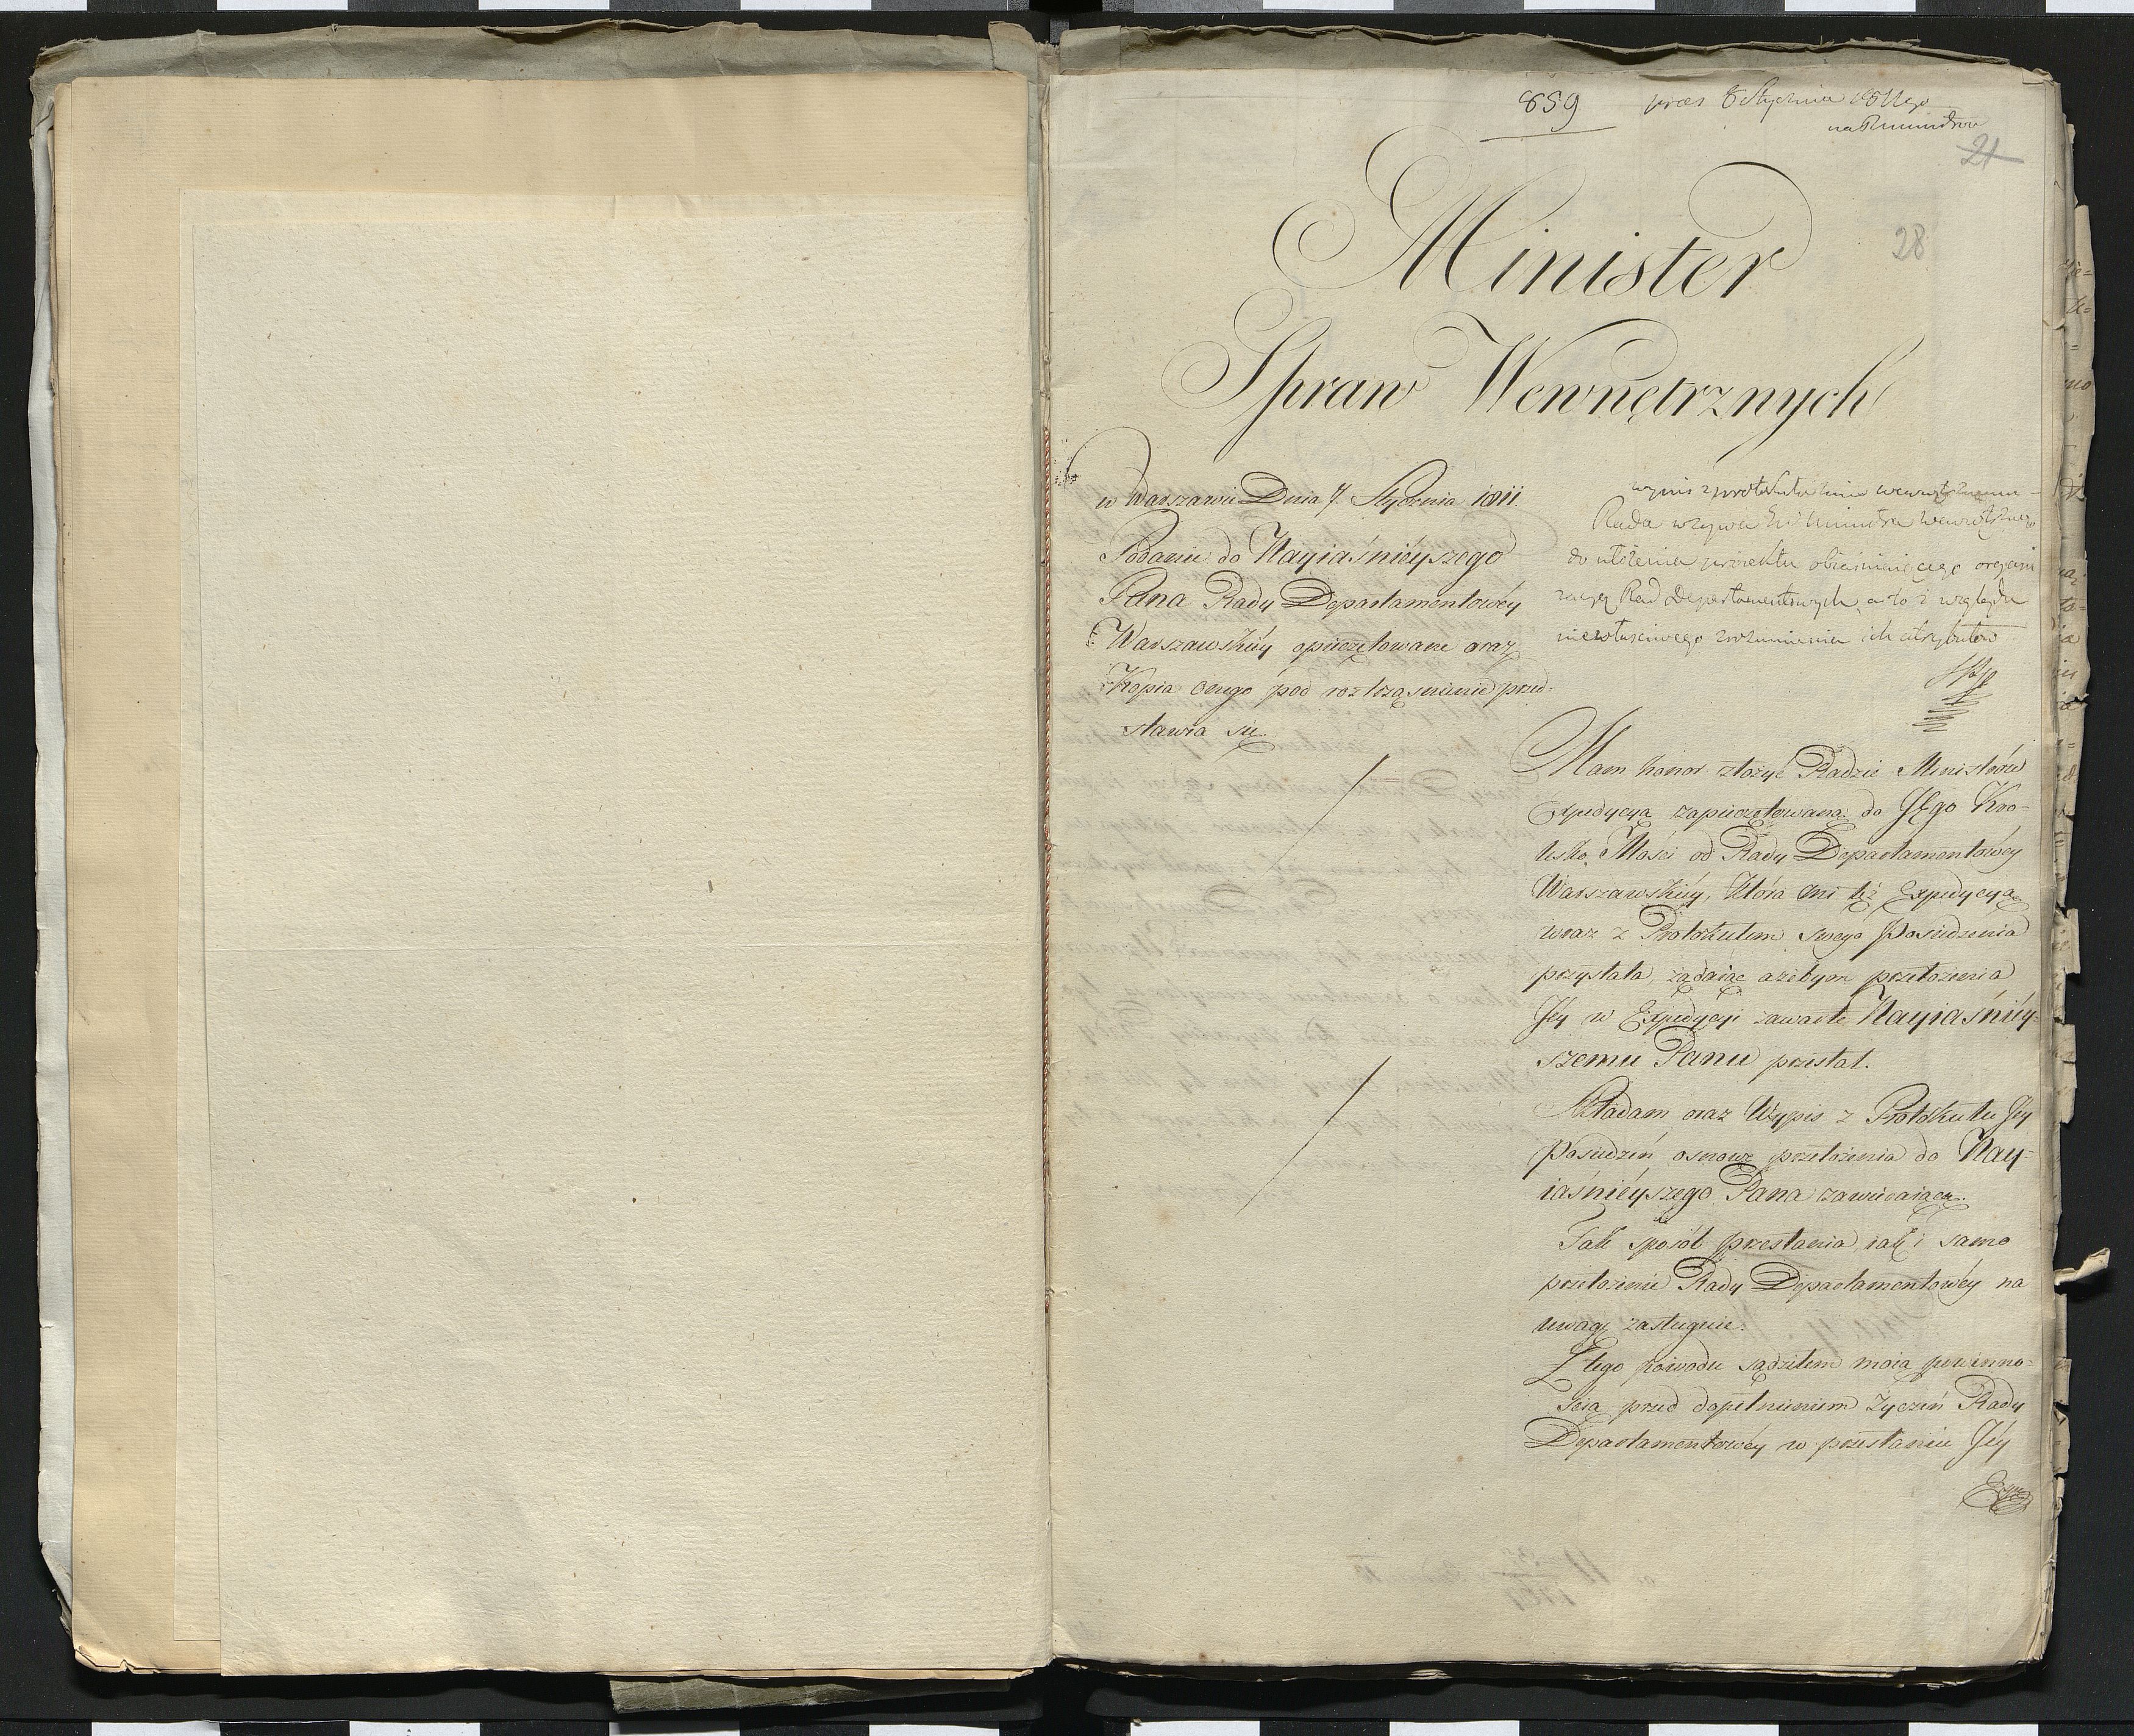 859
pres 8 Stycznia 1811go
21
28
Minister
Spraw Wewnętrznych
w Warszawie Dnia 7. Stycznia 1811.
Podanie do Nayiaśnieyszego
Pana Rady Departamentowéy
Warszawskiéy opieczętowane oraz
Kopia onego pod roztrząśnienie przed=
stawia się.
Rada wzywa Ministra
do ułożenia proiektu obiaśniaiącego organi
zacyą Rad Departamentowych, a to z względu
niewłaściwego zrozumienia ich atrybutów
Mam honor złożyć Radzie Ministrów
Expedycyą zapieczętowaną do JEgo Kró-
lesko. Mości od Rady Departamentowéy
Warszawskiéy, która mi tę Expedycyą
wraz z Protokułem swego Posiedzenia
przysłała, żądaiąc ażebym przełożenia
Jéy w Expedycyi zawarte Nayiaśniéy=
szemu Panu przesłał.
Składam oraz Wypis z Protokułu Jéy
Posiedzeń osnowę przełożenia do Nay=
iaśnieyszego Pana zawieraiącą.
Tak sposób przesłania iak i samo
przełożenie Rady Departamentowéy na
uwagę zasługuie.
Z tego powodu sądziłem moią powinno=
ścią przed dopełnieniem życzeń Rady
Departamentowéy w przesłaniu Jéy